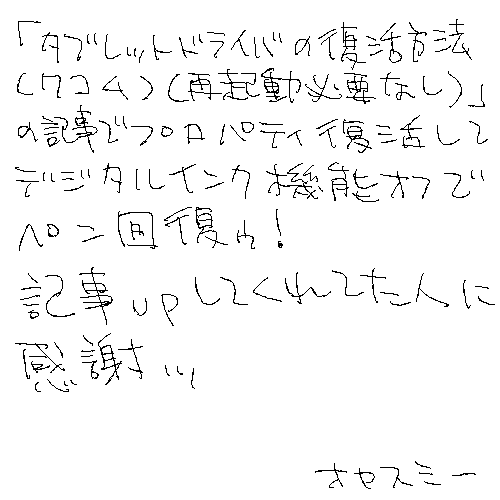 「タブレットドライバの復活方法
(ワコム)(再起動必要なし)」
の記事でプロパティ復活して
デジタルインク機能オフで
ペン回復ゥ!
記事upしてくれてた人に
感謝ッ
オヤスミー